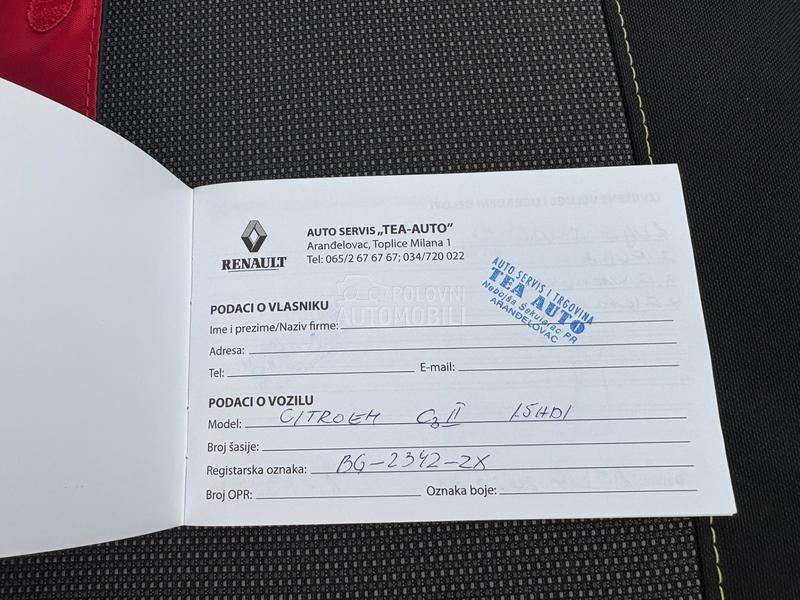 RENAULT
AUTO SERVIS „TEA-AUTO"
Aranđelovac, Toplice Milana 1
Tel: 065/2 67 67 67; 034/720 022
AUTO SERVIS I TRGOVINA
TEA AUTO
Nebojša Sekularac PR
ARANĐELOVAC
POLOVNI
AUTOMOBILI
PODACI O VLASNIKU
Ime i prezime/Naziv firme:
Adresa:
Tel: E-mail:
PODACI O VOZILU
Model: CITROEM C3 II 1.5HDI
Broj šasije:
Registarska oznaka: BG-2342-ZX
Broj OPR: Oznaka boje: